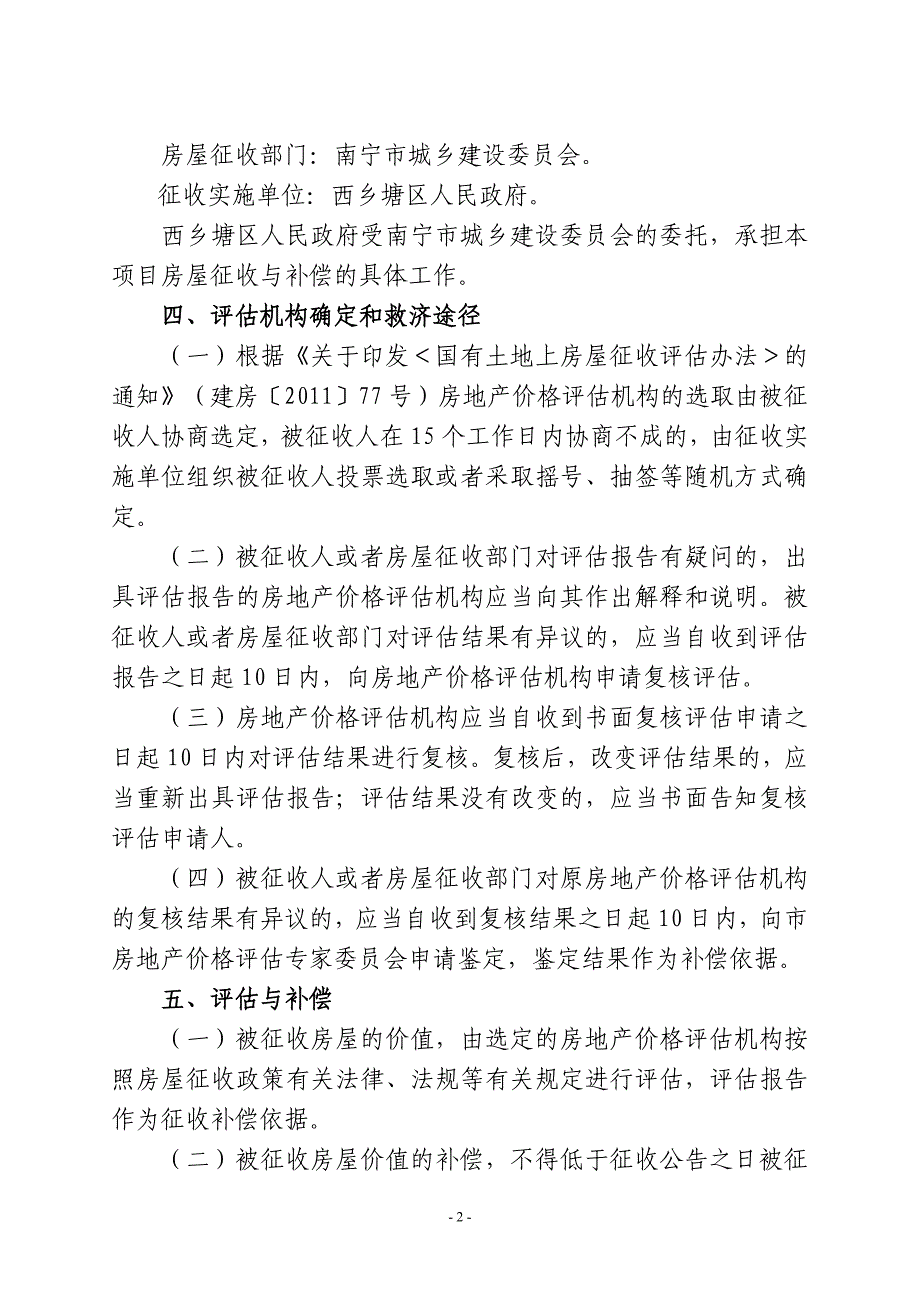 房屋征收部门：南宁市城乡建设委员会。
征收实施单位：西乡塘区人民政府。
西乡塘区人民政府受南宁市城乡建设委员会的委托，承担本
项目房屋征收与补偿的具体工作。
四、评估机构确定和救济途径
（一）根据《关于印发＜国有土地上房屋征收评估办法＞的
通知》（建房〔2011〕77 号）房地产价格评估机构的选取由被征
收人协商选定，被征收人在 15 个工作日内协商不成的，由征收实
施单位组织被征收人投票选取或者采取摇号、抽签等随机方式确
定。
（二）被征收人或者房屋征收部门对评估报告有疑问的，出
具评估报告的房地产价格评估机构应当向其作出解释和说明。被
征收人或者房屋征收部门对评估结果有异议的，应当自收到评估
报告之日起 10 日内，向房地产价格评估机构申请复核评估。
（三）房地产价格评估机构应当自收到书面复核评估申请之
日起 10 日内对评估结果进行复核。复核后，改变评估结果的，应
当重新出具评估报告；评估结果没有改变的，应当书面告知复核
评估申请人。
（四）被征收人或者房屋征收部门对原房地产价格评估机构
的复核结果有异议的，应当自收到复核结果之日起 10 日内，向市
房地产价格评估专家委员会申请鉴定，鉴定结果作为补偿依据。
五、评估与补偿
（一）被征收房屋的价值，由选定的房地产价格评估机构按
照房屋征收政策有关法律、法规等有关规定进行评估，评估报告
作为征收补偿依据。
（二）被征收房屋价值的补偿，不得低于征收公告之日被征
- 2 -